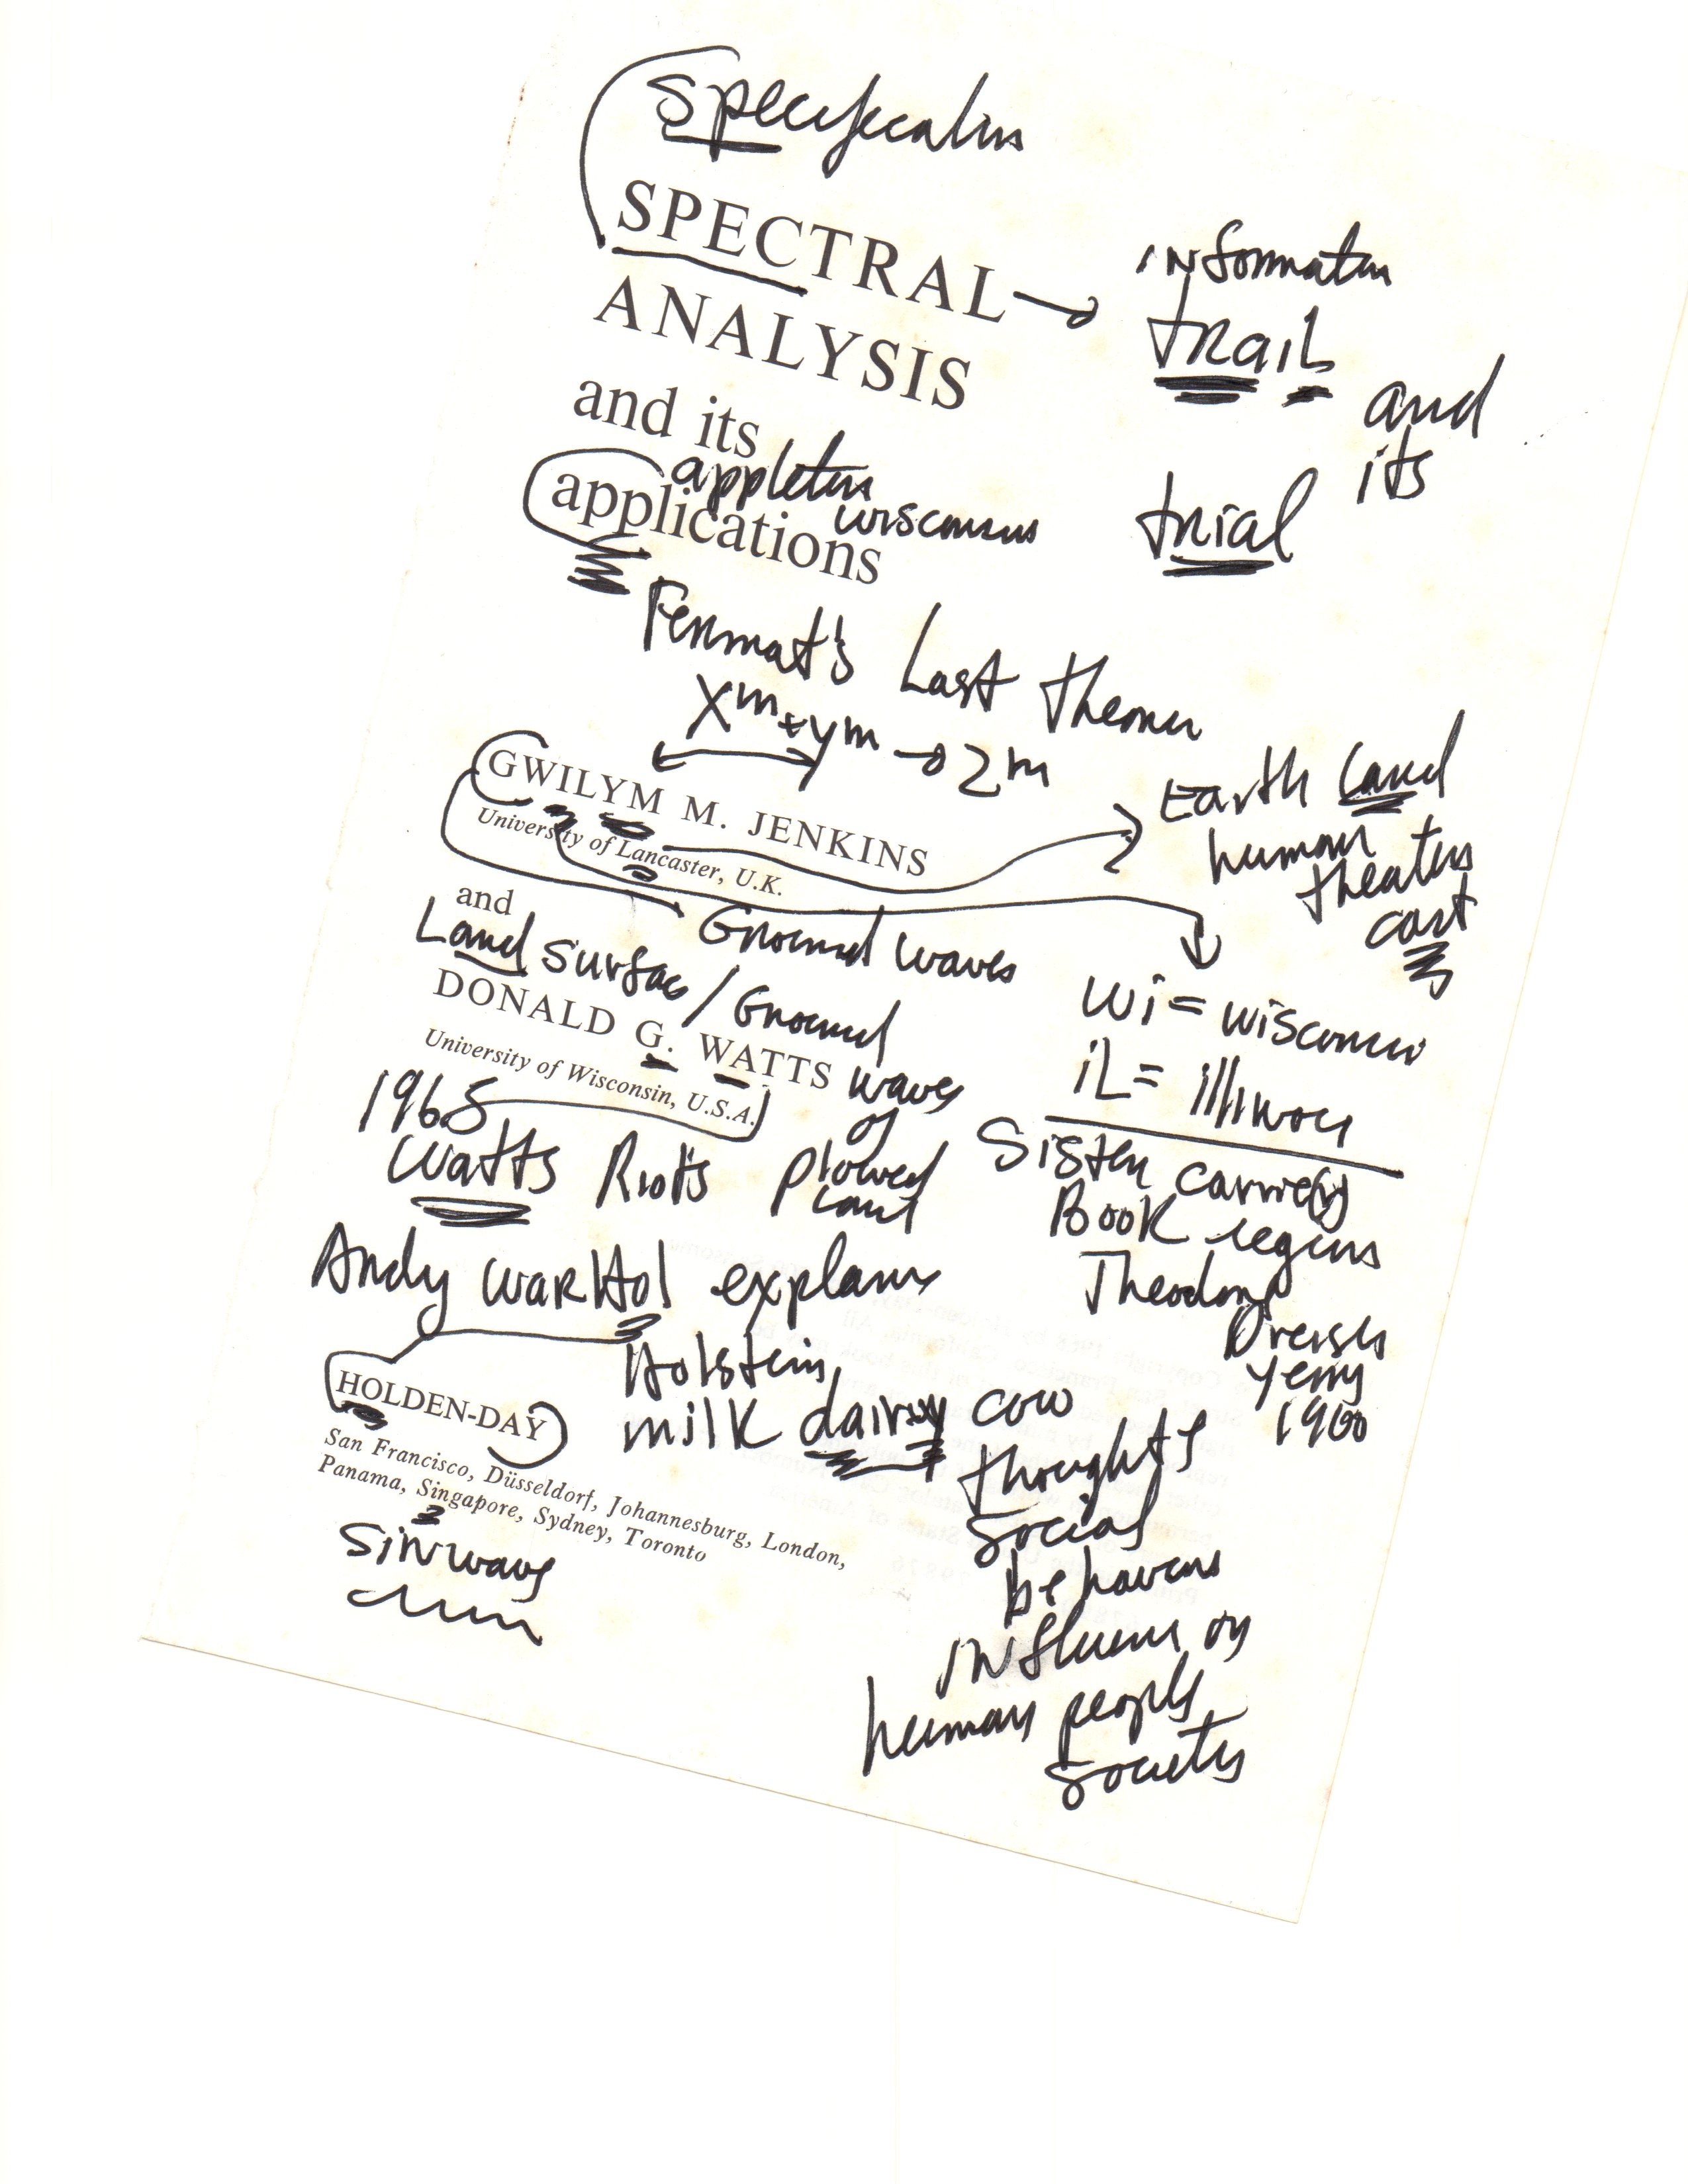 SPECTRAL
ANALYSIS
and its
applications
appleton
wisconsin
information
trail
and
its
trial
Fermat's Last
X^m + y^m → Z^m
GWILYM M. JENKINS
University of Lancaster, U.K.
and
Earth Land
human
theaters
cast
Ground waves
Land surfac / Ground
DONALD G. WATTS
University of Wisconsin, U.S.A.
waves
of
plowed
land
wi = wisconsin
iL = illinois
1965
Watts Riots
Sister carrie
Book
Theodore
Dreiser
1900
Andy warHol explains
Holstein
milk dairy cow
thoughts
social
behaviors
on
human people
society
HOLDEN-DAY
San Francisco, Düsseldorf, Johannesburg, London,
Panama, Singapore, Sydney, Toronto
SiN wave